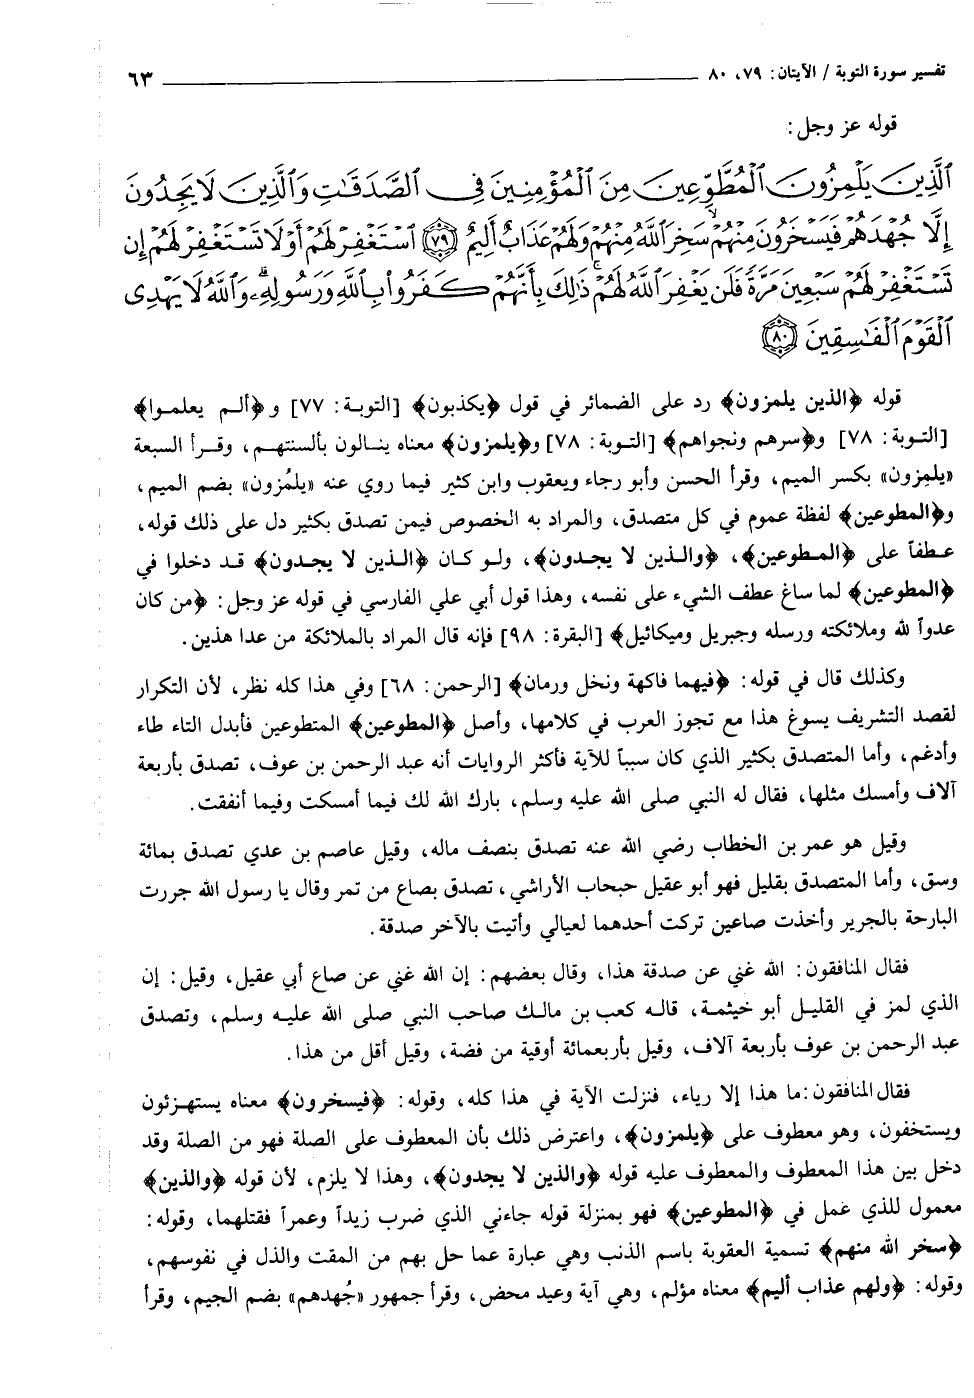 تفسير سورة التوبة / الآيتان: ٧٩، ٨٠ ــــــ ٦٣
قوله عز وجل:
ٱلَّذِينَ يَلْمِزُونَ ٱلْمُطَّوِّعِينَ مِنَ ٱلْمُؤْمِنِينَ فِى ٱلصَّدَقَٰتِ وَٱلَّذِينَ لَا يَجِدُونَ
إِلَّا جُهْدَهُمْ فَيَسْخَرُونَ مِنْهُمْ سَخِرَ ٱللَّهُ مِنْهُمْ وَلَهُمْ عَذَابٌ أَلِيمٌ ﴿٧٩﴾ ٱسْتَغْفِرْ لَهُمْ أَوْ لَا تَسْتَغْفِرْ لَهُمْ إِن
تَسْتَغْفِرْ لَهُمْ سَبْعِينَ مَرَّةً فَلَن يَغْفِرَ ٱللَّهُ لَهُمْ ذَٰلِكَ بِأَنَّهُمْ كَفَرُوا۟ بِٱللَّهِ وَرَسُولِهِۦ وَٱللَّهُ لَا يَهْدِى
ٱلْقَوْمَ ٱلْفَٰسِقِينَ ﴿٨٠﴾
قوله ﴿الذين يلمزون﴾ رد على الضمائر في قول ﴿يكذبون﴾ [التوبة: ٧٧] و﴿ألم يعلموا﴾
[التوبة: ٧٨] و﴿سرهم ونجواهم﴾ [التوبة: ٧٨] و﴿يلمزون﴾ معناه ينالون بألسنتهم، وقرأ السبعة
«يلمزون» بكسر الميم، وقرأ الحسن وأبو رجاء ويعقوب وابن كثير فيما روي عنه «يلمُزون» بضم الميم،
و﴿المطوعين﴾ لفظة عموم في كل متصدق، والمراد به الخصوص فيمن تصدق بكثير دل على ذلك قوله،
عطفاً على ﴿المطوعين﴾، ﴿والذين لا يجدون﴾، ولو كان ﴿الذين لا يجدون﴾ قد دخلوا في
﴿المطوعين﴾ لما ساغ عطف الشيء على نفسه، وهذا قول أبي علي الفارسي في قوله عز وجل: ﴿من كان
عدواً لله وملائكته ورسله وجبريل وميكائيل﴾ [البقرة: ٩٨] فإنه قال المراد بالملائكة من عدا هذين.
وكذلك قال في قوله: ﴿فيهما فاكهة ونخل ورمان﴾ [الرحمن: ٦٨] وفي هذا كله نظر، لأن التكرار
لقصد التشريف يسوغ هذا مع تجوز العرب في كلامها، وأصل ﴿المطوعين﴾ المتطوعين فأبدل التاء طاء
وأدغم، وأما المتصدق بكثير الذي كان سبباً للآية فأكثر الروايات أنه عبد الرحمن بن عوف، تصدق بأربعة
آلاف وأمسك مثلها، فقال له النبي صلى الله عليه وسلم، بارك الله لك فيما أمسكت وفيما أنفقت.
وقيل هو عمر بن الخطاب رضي الله عنه تصدق بنصف ماله، وقيل عاصم بن عدي تصدق بمائة
وسق، وأما المتصدق بقليل فهو أبو عقيل حبحاب الأراشي، تصدق بصاع من تمر وقال يا رسول الله جررت
البارحة بالجرير وأخذت صاعين تركت أحدهما لعيالي وأتيت بالآخر صدقة.
فقال المنافقون: الله غني عن صدقة هذا، وقال بعضهم: إن الله غني عن صاع أبي عقيل، وقيل: إن
الذي لمز في القليل أبو خيثمة، قاله كعب بن مالك صاحب النبي صلى الله عليه وسلم، وتصدق
عبد الرحمن بن عوف بأربعة آلاف، وقيل بأربعمائة أوقية من فضة، وقيل أقل من هذا.
فقال المنافقون: ما هذا إلا رياء، فنزلت الآية في هذا كله، وقوله: ﴿فيسخرون﴾ معناه يستهزئون
ويستخفون، وهو معطوف على ﴿يلمزون﴾، واعترض ذلك بأن المعطوف على الصلة فهو من الصلة وقد
دخل بين هذا المعطوف والمعطوف عليه قوله ﴿والذين لا يجدون﴾، وهذا لا يلزم، لأن قوله ﴿والذين﴾
معمول للذي عمل في ﴿المطوعين﴾ فهو بمنزلة قوله جاءني الذي ضرب زيداً وعمراً فقتلهما، وقوله:
﴿سخر الله منهم﴾ تسمية العقوبة باسم الذنب وهي عبارة عما حل بهم من المقت والذل في نفوسهم،
وقوله: ﴿ولهم عذاب أليم﴾ معناه مؤلم، وهي آية وعيد محض، وقرأ جمهور «جُهدهم» بضم الجيم، وقرأ